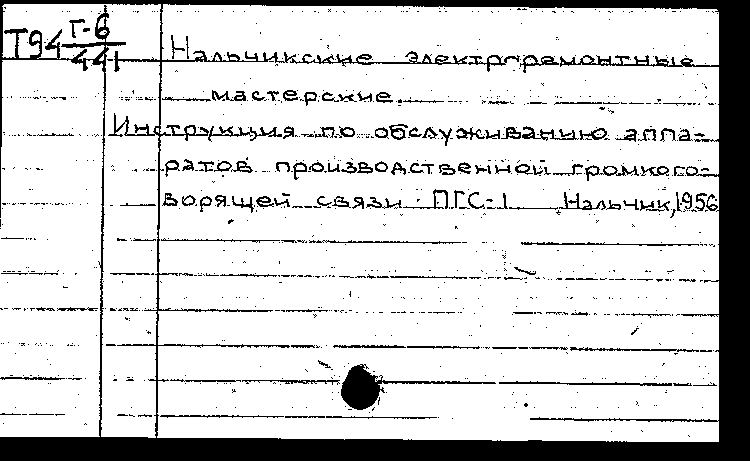 Т94 Г-6
441
Нальчикские электроремонтные
мастерские.
Инструкция по обслуживанию аппа-
ратов производственной громкого-
ворящей связи ПГС-1 Нальчик, 1956